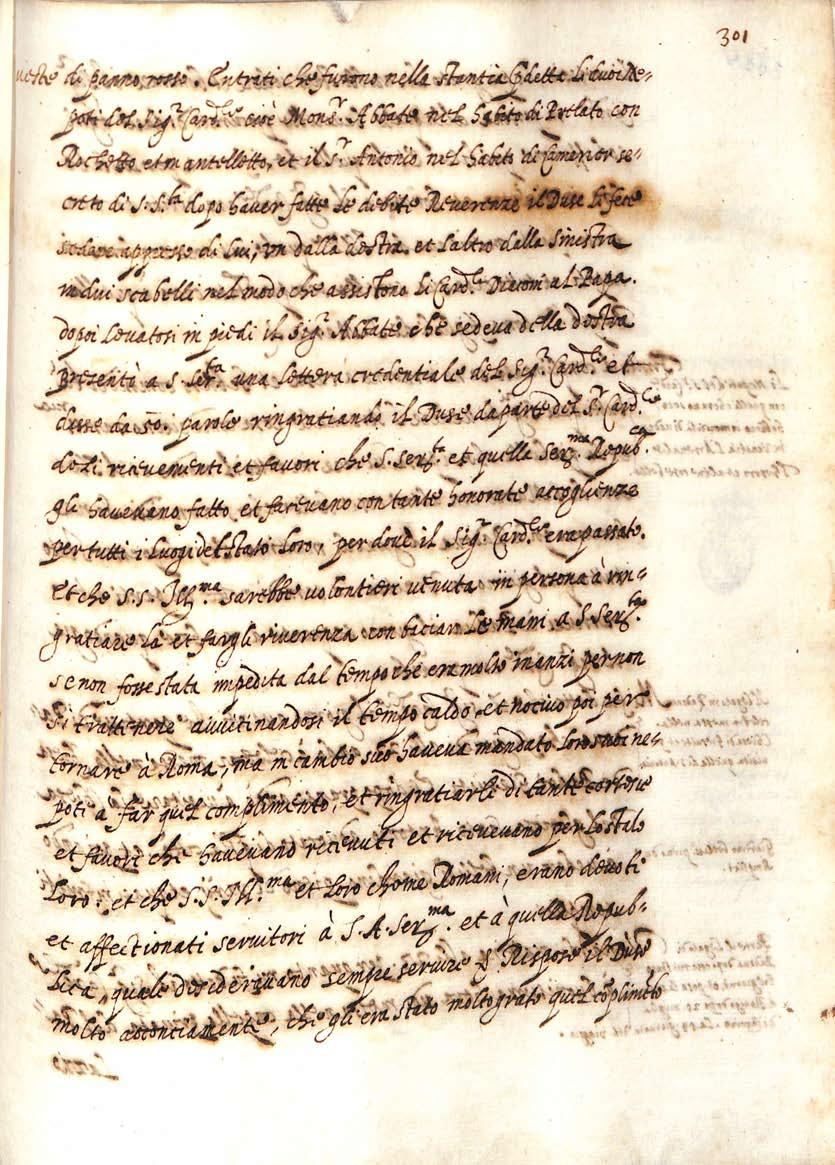 301
ueste di panno rosso. Entrati che furono nella stantia pdetta li duoi Ne=
poti del Sig.r Card.le cioè Mons.r Abbate nel habito di Prelato con
Rochetto et mantelletto, et il S.r Antonio nel habito di Camerier se=
creto di S. S.tà dopo haver fatte le debite Reverenze il Duse li fece
sedere appresso di lui, vn dalla destra et l'altro dalla sinistra
in dui scabelli nel modo che assistono li Card.li Diaconi al Papa.
dopoi levatosi in piedi il Sig.r Abbate che sedeva della destra
presentò a S. Ser.tà una lettera credentiale del Sig.r Card.le et
disse da 50. parole ringratiando il Duse da parte del S.r Card.le
de li ricevementi et favori che S. Ser.tà et quella Ser.ma Repub.ca
gli havevano fatto et facevano con tante honorate accoglienze
per tutti i luogi del Stato loro, per dove il Sig.r Card.le era passato.
et che S.S. Ill.ma sarebbe volontieri venuta in persona à rin=
gratiare la et fargli riverenza con baciar le mani a S. Ser.tà
se non fosse stata impedita dal tempo che era molto inanzi per non
si trattenere avvicinandosi il tempo caldo, et nocivo poi per
tornare à Roma, ma in cambio suo haveva mandato loro suoi ne=
poti a far quel complimento, et ringratiarli di tante cortesie
et favori che havevano ricevuti et ricevevano per lo stato
loro. et che S.S. Ill.ma et loro chome Romani, erano devoti
et affectionati servitori à S. A. Ser.ma et à quella Repub=
lica, quale desideravano sempre servire &. Rispose il Duse
molto acconciamente, che gli era stato molto grato quel cōplimēto